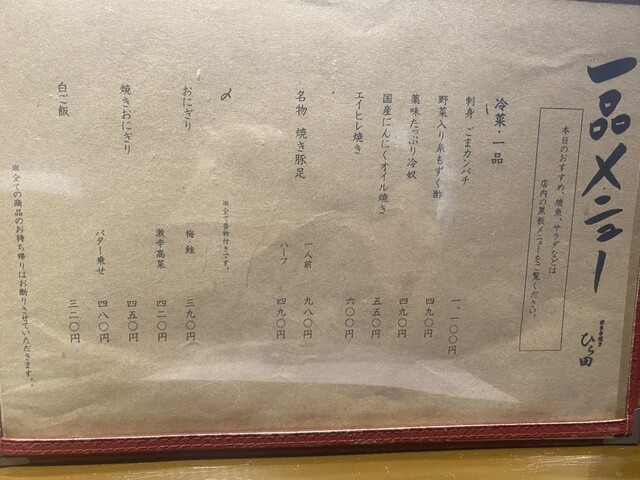 一品メニュー
博多串焼き ひら田
本日のおすすめ、焼魚、サラダなどは
店内の黒板メニューをご覧ください。
冷菜・一品
刺身 ごまカンパチ 一、一〇〇円
野菜入り糸もずく酢 四九〇円
薬味たっぷり冷奴 四九〇円
国産にんにくオイル焼き 五五〇円
エイヒレ焼き 六〇〇円
名物 焼き豚足 一人前 九八〇円
ハーフ 四九〇円
〆
※全て香物付きです。
おにぎり 梅・鮭 三九〇円
激辛高菜 四二〇円
焼きおにぎり 四五〇円
バター乗せ 四八〇円
白ご飯 三二〇円
※全ての商品のお持ち帰りはお断りさせていただきます。